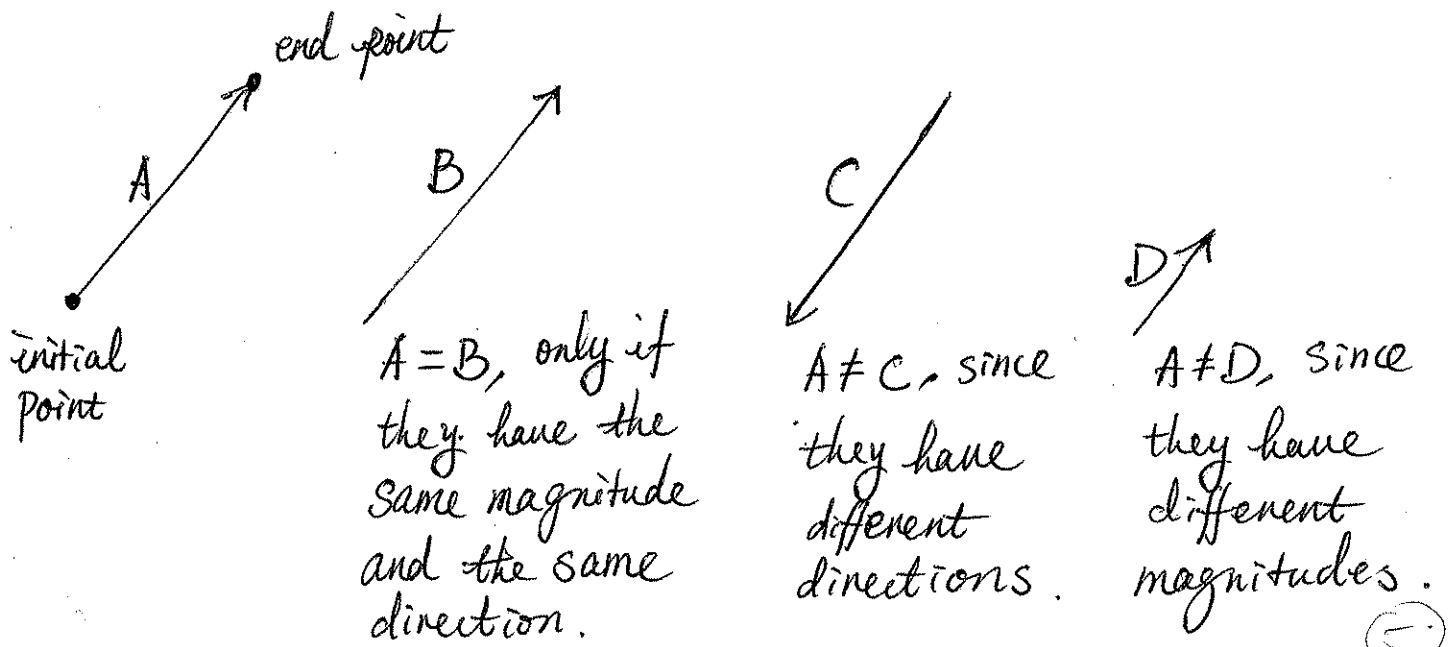 end point
A
B
C
D
initial
point
A = B, only if
they have the
same magnitude
and the same
direction.
A ≠ C, since
they have
different
directions.
A ≠ D, since
they have
different
magnitudes.